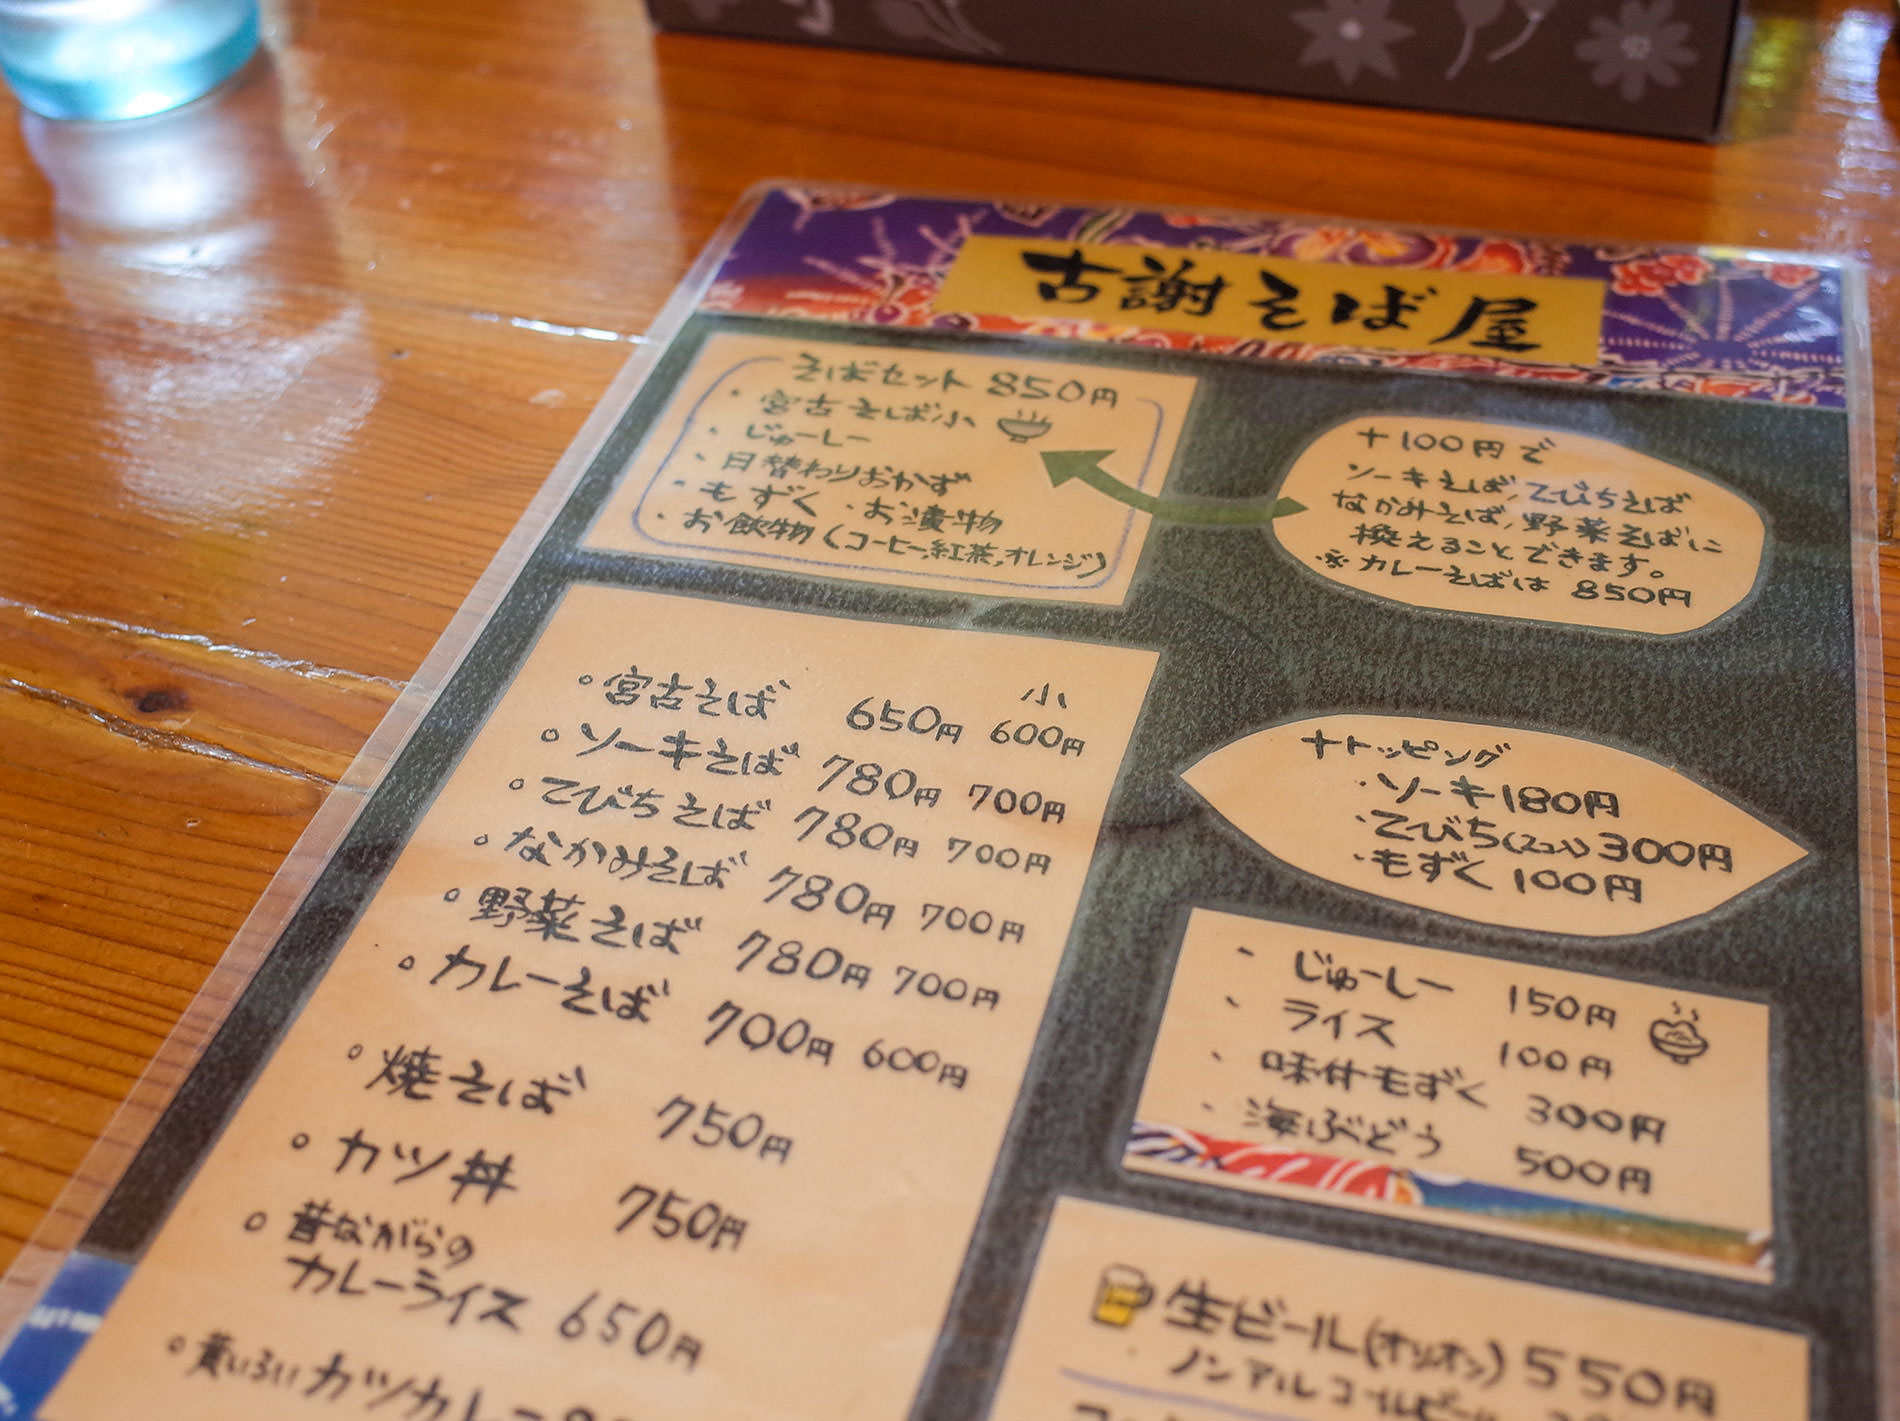 古謝そば屋
そばセット 850円
・宮古そば小
・じゅーしー
・日替わりおかず
・もずく ・お漬物
・お飲物(コーヒー,紅茶,オレンジ)
+100円で
ソーキそば,てびちそば
なかみそば,野菜そばに
換えることができます。
※カレーそばは 850円
小
。宮古そば 650円 600円
。ソーキそば 780円 700円
。てびちそば 780円 700円
。なかみそば 780円 700円
。野菜そば 780円 700円
。カレーそば 700円 600円
。焼そば 750円
。カツ丼 750円
。昔ながらの
カレーライス 650円
。黄いろいカツカレー
+トッピング
・ソーキ180円
・てびち(2コ入) 300円
・もずく 100円
・じゅーしー 150円
・ライス 100円
・味付もずく 300円
・海ぶどう 500円
生ビール(オリオン) 550円
・ノンアルコールビール